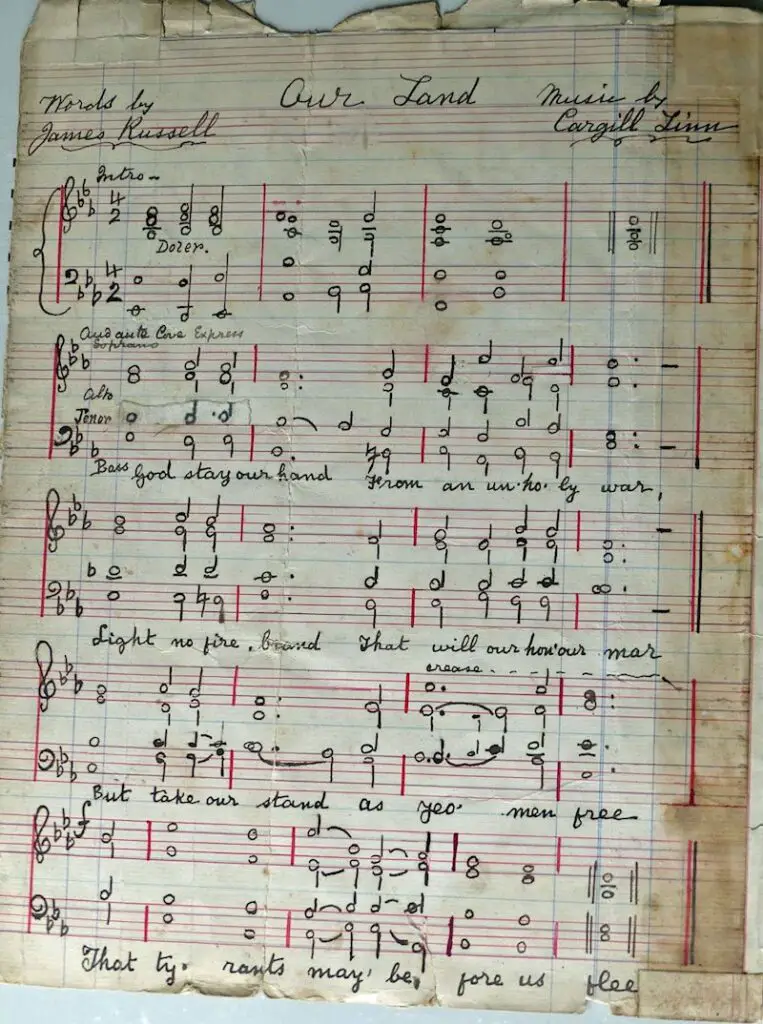 Words by Our Land Music by
James Russell Cargill Linn
Intro-
4 2
4 2
Andante Con Express
Soprano
Alto
Tenor
Bass God stay our hand From an un-ho-ly war,
Light no fire. brand That will our honour mar
But take our stand as yeo. men free
f
That ty. rants may be, fore us flee